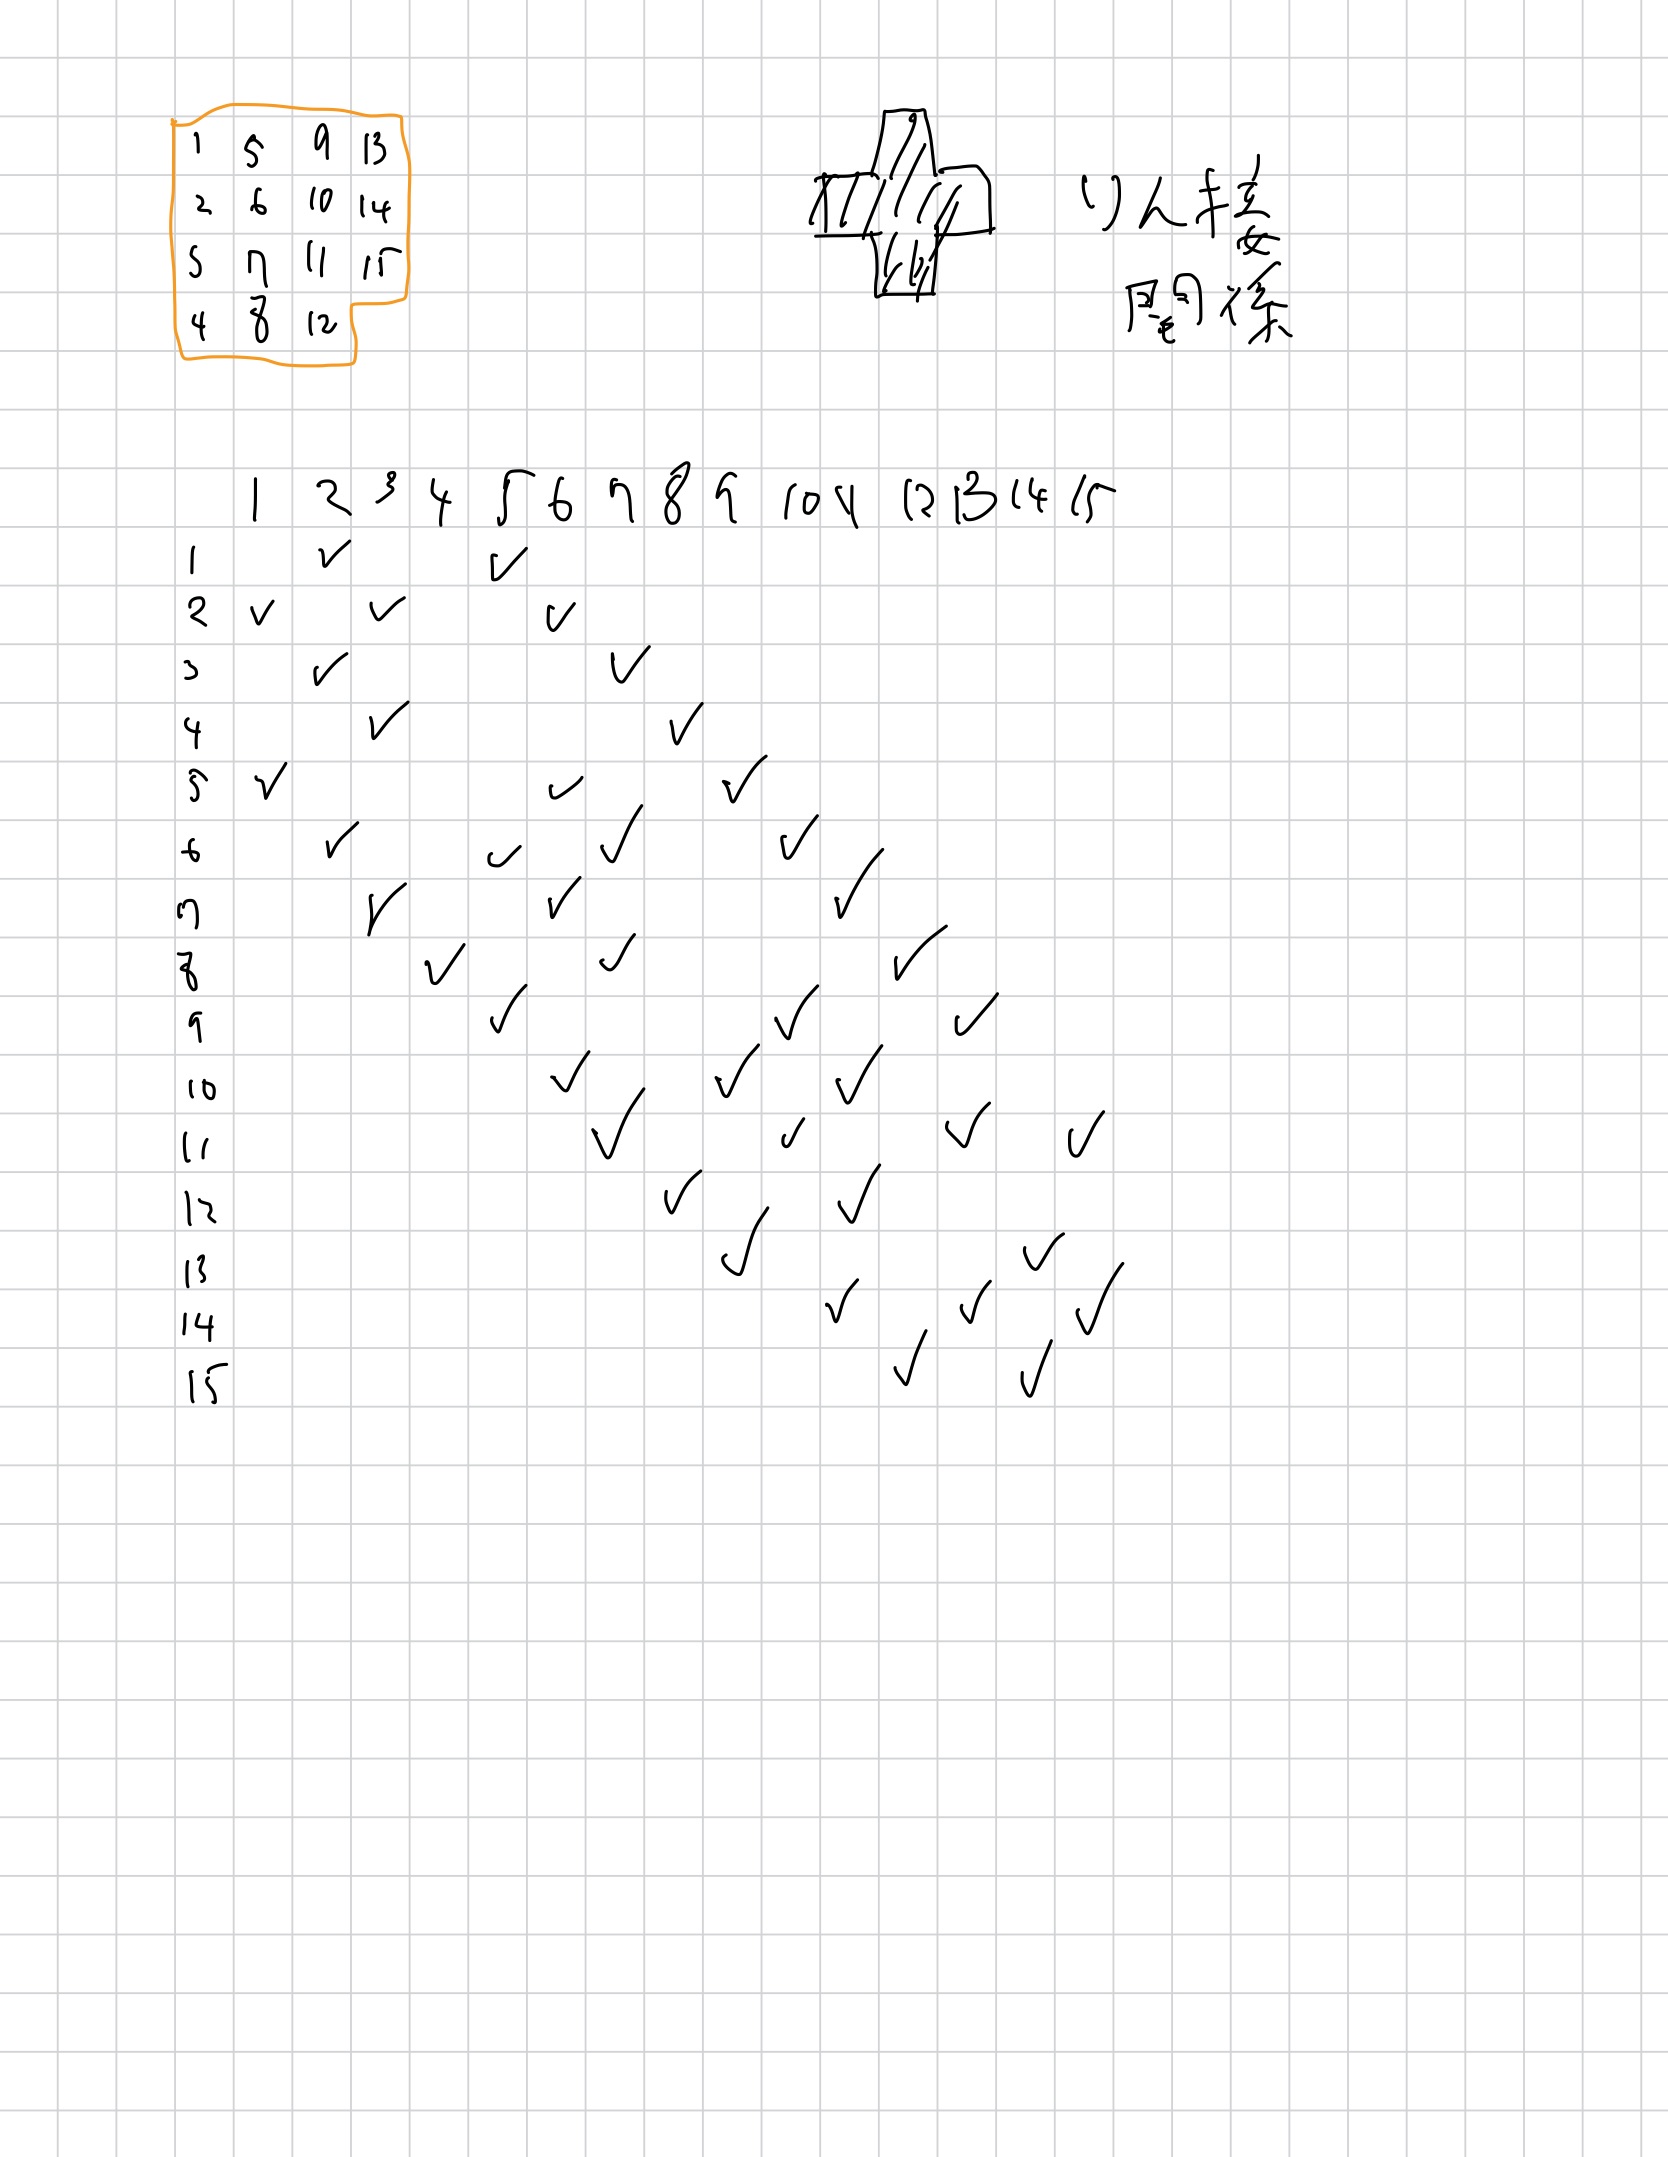 1 5 9 13
2 6 10 14
3 7 11 15
4 8 12
りん接
関係
1 2 3 4 5 6 7 8 9 10 11 12 13 14 15
1 ✓ ✓
2 ✓ ✓ ✓
3 ✓ ✓
4 ✓ ✓
5 ✓ ✓ ✓
6 ✓ ✓ ✓ ✓
7 ✓ ✓ ✓
8 ✓ ✓ ✓
9 ✓ ✓ ✓
10 ✓ ✓ ✓
11 ✓ ✓ ✓ ✓
12 ✓ ✓
13 ✓ ✓
14 ✓ ✓ ✓
15 ✓ ✓